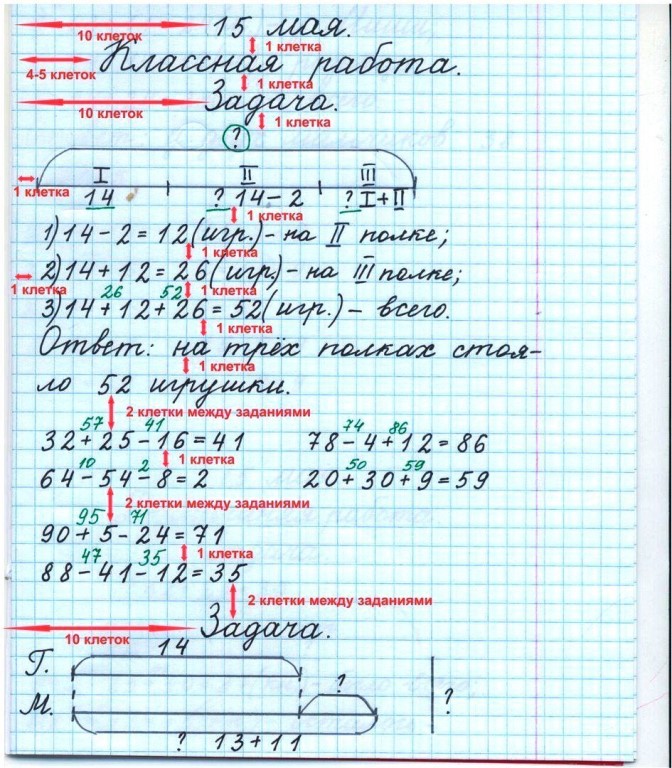 10 клеток 15 мая.
1 клетка
4-5 клеток Классная работа.
1 клетка
10 клеток Задача.
1 клетка
?
I II III
1 клетка 14 ? 14-2 ? I+II
1 клетка
1) 14-2=12(игр.)-на II полке;
1 клетка
2) 14+12=26(игр.)-на III полке;
1 клетка 1 клетка
26 52
3) 14+12+26=52(игр.)- всего.
1 клетка
Ответ: на трёх полках стоя-
1 клетка
ло 52 игрушки.
2 клетки между заданиями
57 41 74 86
32+25-16=41 78-4+12=86
1 клетка
10 2 50 59
64-54-8=2 20+30+9=59
2 клетки между заданиями
95 71
90+5-24=71
1 клетка
47 35
88-41-12=35
2 клетки между заданиями
10 клеток Задача.
14
Г.
?
М. ?
? 13+11